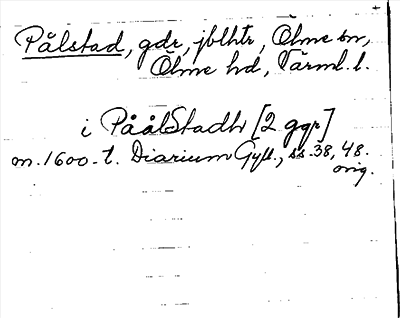 Pålstad, gdr, jblhtr, Ölme sn,
Ölme hd, Värml. l.
i PåålStadh [2 ggr]
m. 1600-t. Diarium Gyll., ss. 38, 48.
orig.